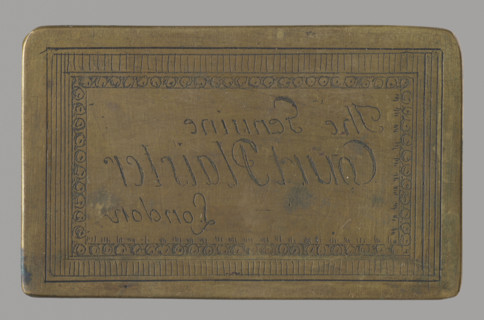 The Genuine
Court Plaister
London